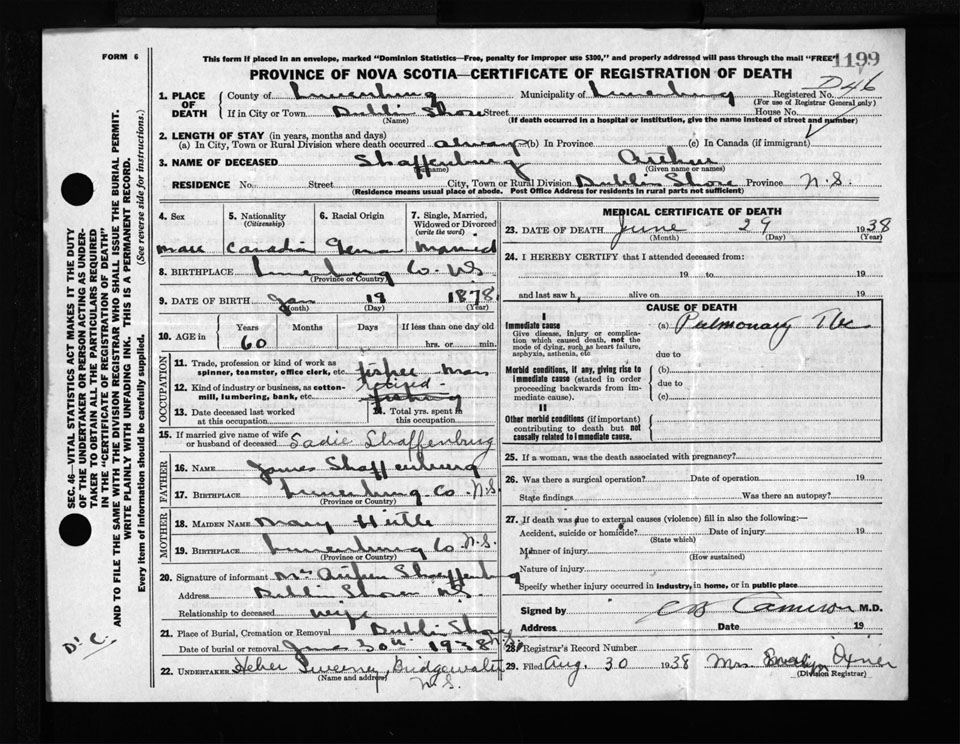 FORM 6
This form if placed in an envelope, marked "Dominion Statistics—Free, penalty for improper use $300," and properly addressed will pass through the mail "FREE"
1199
PROVINCE OF NOVA SCOTIA—CERTIFICATE OF REGISTRATION OF DEATH
D46
1. PLACE OF DEATH
County of Lunenburg Municipality of Lunenburg Registered No.
(For use of Registrar General only)
If in City or Town Dublin Shore Street House No.
(Name) (If death occurred in a hospital or institution, give the name instead of street and number)
2. LENGTH OF STAY (in years, months and days)
(a) In City, Town or Rural Division where death occurred always (b) In Province (c) In Canada (if immigrant)
3. NAME OF DECEASED Shaffenburg Arthur
(Given name or names)
RESIDENCE No. Street City, Town or Rural Division Dublin Shore Province N.S.
(Residence means usual place of abode. Post Office Address for residents in rural parts not sufficient)
4. Sex 5. Nationality (Citizenship) 6. Racial Origin 7. Single, Married, Widowed or Divorced (write the word)
male Canadian German Married
8. BIRTHPLACE Lunenburg Co. N.S.
(Province or Country)
9. DATE OF BIRTH Jan 19 1878
(Month) (Day) (Year)
10. AGE in Years Months Days If less than one day old
60 hrs. or min.
OCCUPATION
11. Trade, profession or kind of work as spinner, teamster, office clerk, etc. fisher man
12. Kind of industry or business, as cotton-mill, lumbering, bank, etc. retired fishing
13. Date deceased last worked at this occupation
14. Total yrs. spent in this occupation
15. If married give name of wife or husband of deceased Sadie Shaffenburg
FATHER
16. NAME James Shaffenburg
17. BIRTHPLACE Lunenburg Co. N.S.
(Province or Country)
MOTHER
18. MAIDEN NAME Mary Hirtle
19. BIRTHPLACE Lunenburg Co N.S.
(Province or Country)
20. Signature of informant Mrs Arthur Shaffenburg
Address Dublin Shore N.S.
Relationship to deceased wife
21. Place of Burial, Cremation or Removal Dublin Shore
Date of burial or removal June 30th 1938 N.S.
22. UNDERTAKER Heber Sweeney Bridgewater
(Name and address) N.S.
MEDICAL CERTIFICATE OF DEATH
23. DATE OF DEATH June 29 1938
(Month) (Day) (Year)
24. I HEREBY CERTIFY that I attended deceased from:
19 to 19
and last saw h alive on 19
CAUSE OF DEATH
I
Immediate cause (a) Pulmonary Tbc
Give disease, injury or complication which caused death, not the mode of dying, such as heart failure, asphyxia, asthenia, etc
due to
Morbid conditions, if any, giving rise to immediate cause (stated in order proceeding backwards from immediate cause).
(b)
due to
(c)
II
Other morbid conditions (if important) contributing to death but not causally related to immediate cause.
25. If a woman, was the death associated with pregnancy?
26. Was there a surgical operation? Date of operation 19
State findings Was there an autopsy?
27. If death was due to external causes (violence) fill in also the following:—
Accident, suicide or homicide? Date of injury 19
(State which)
Manner of injury
(How sustained)
Nature of injury
Specify whether injury occurred in industry, in home, or in public place
Signed by Cameron M.D.
Address Date 19
28. Registrar's Record Number
29. Filed Aug. 30 1938 Mrs. Evelyn Oxner
(Division Registrar)
SEC. 46—VITAL STATISTICS ACT MAKES IT THE DUTY OF THE UNDERTAKER OR PERSON ACTING AS UNDERTAKER TO OBTAIN ALL THE PARTICULARS REQUIRED IN THE "CERTIFICATE OF REGISTRATION OF DEATH"
AND TO FILE THE SAME WITH THE DIVISION REGISTRAR WHO SHALL ISSUE THE BURIAL PERMIT.
WRITE PLAINLY WITH UNFADING INK. THIS IS A PERMANENT RECORD.
Every item of information should be carefully supplied. (See reverse side for instructions.)
D.C.